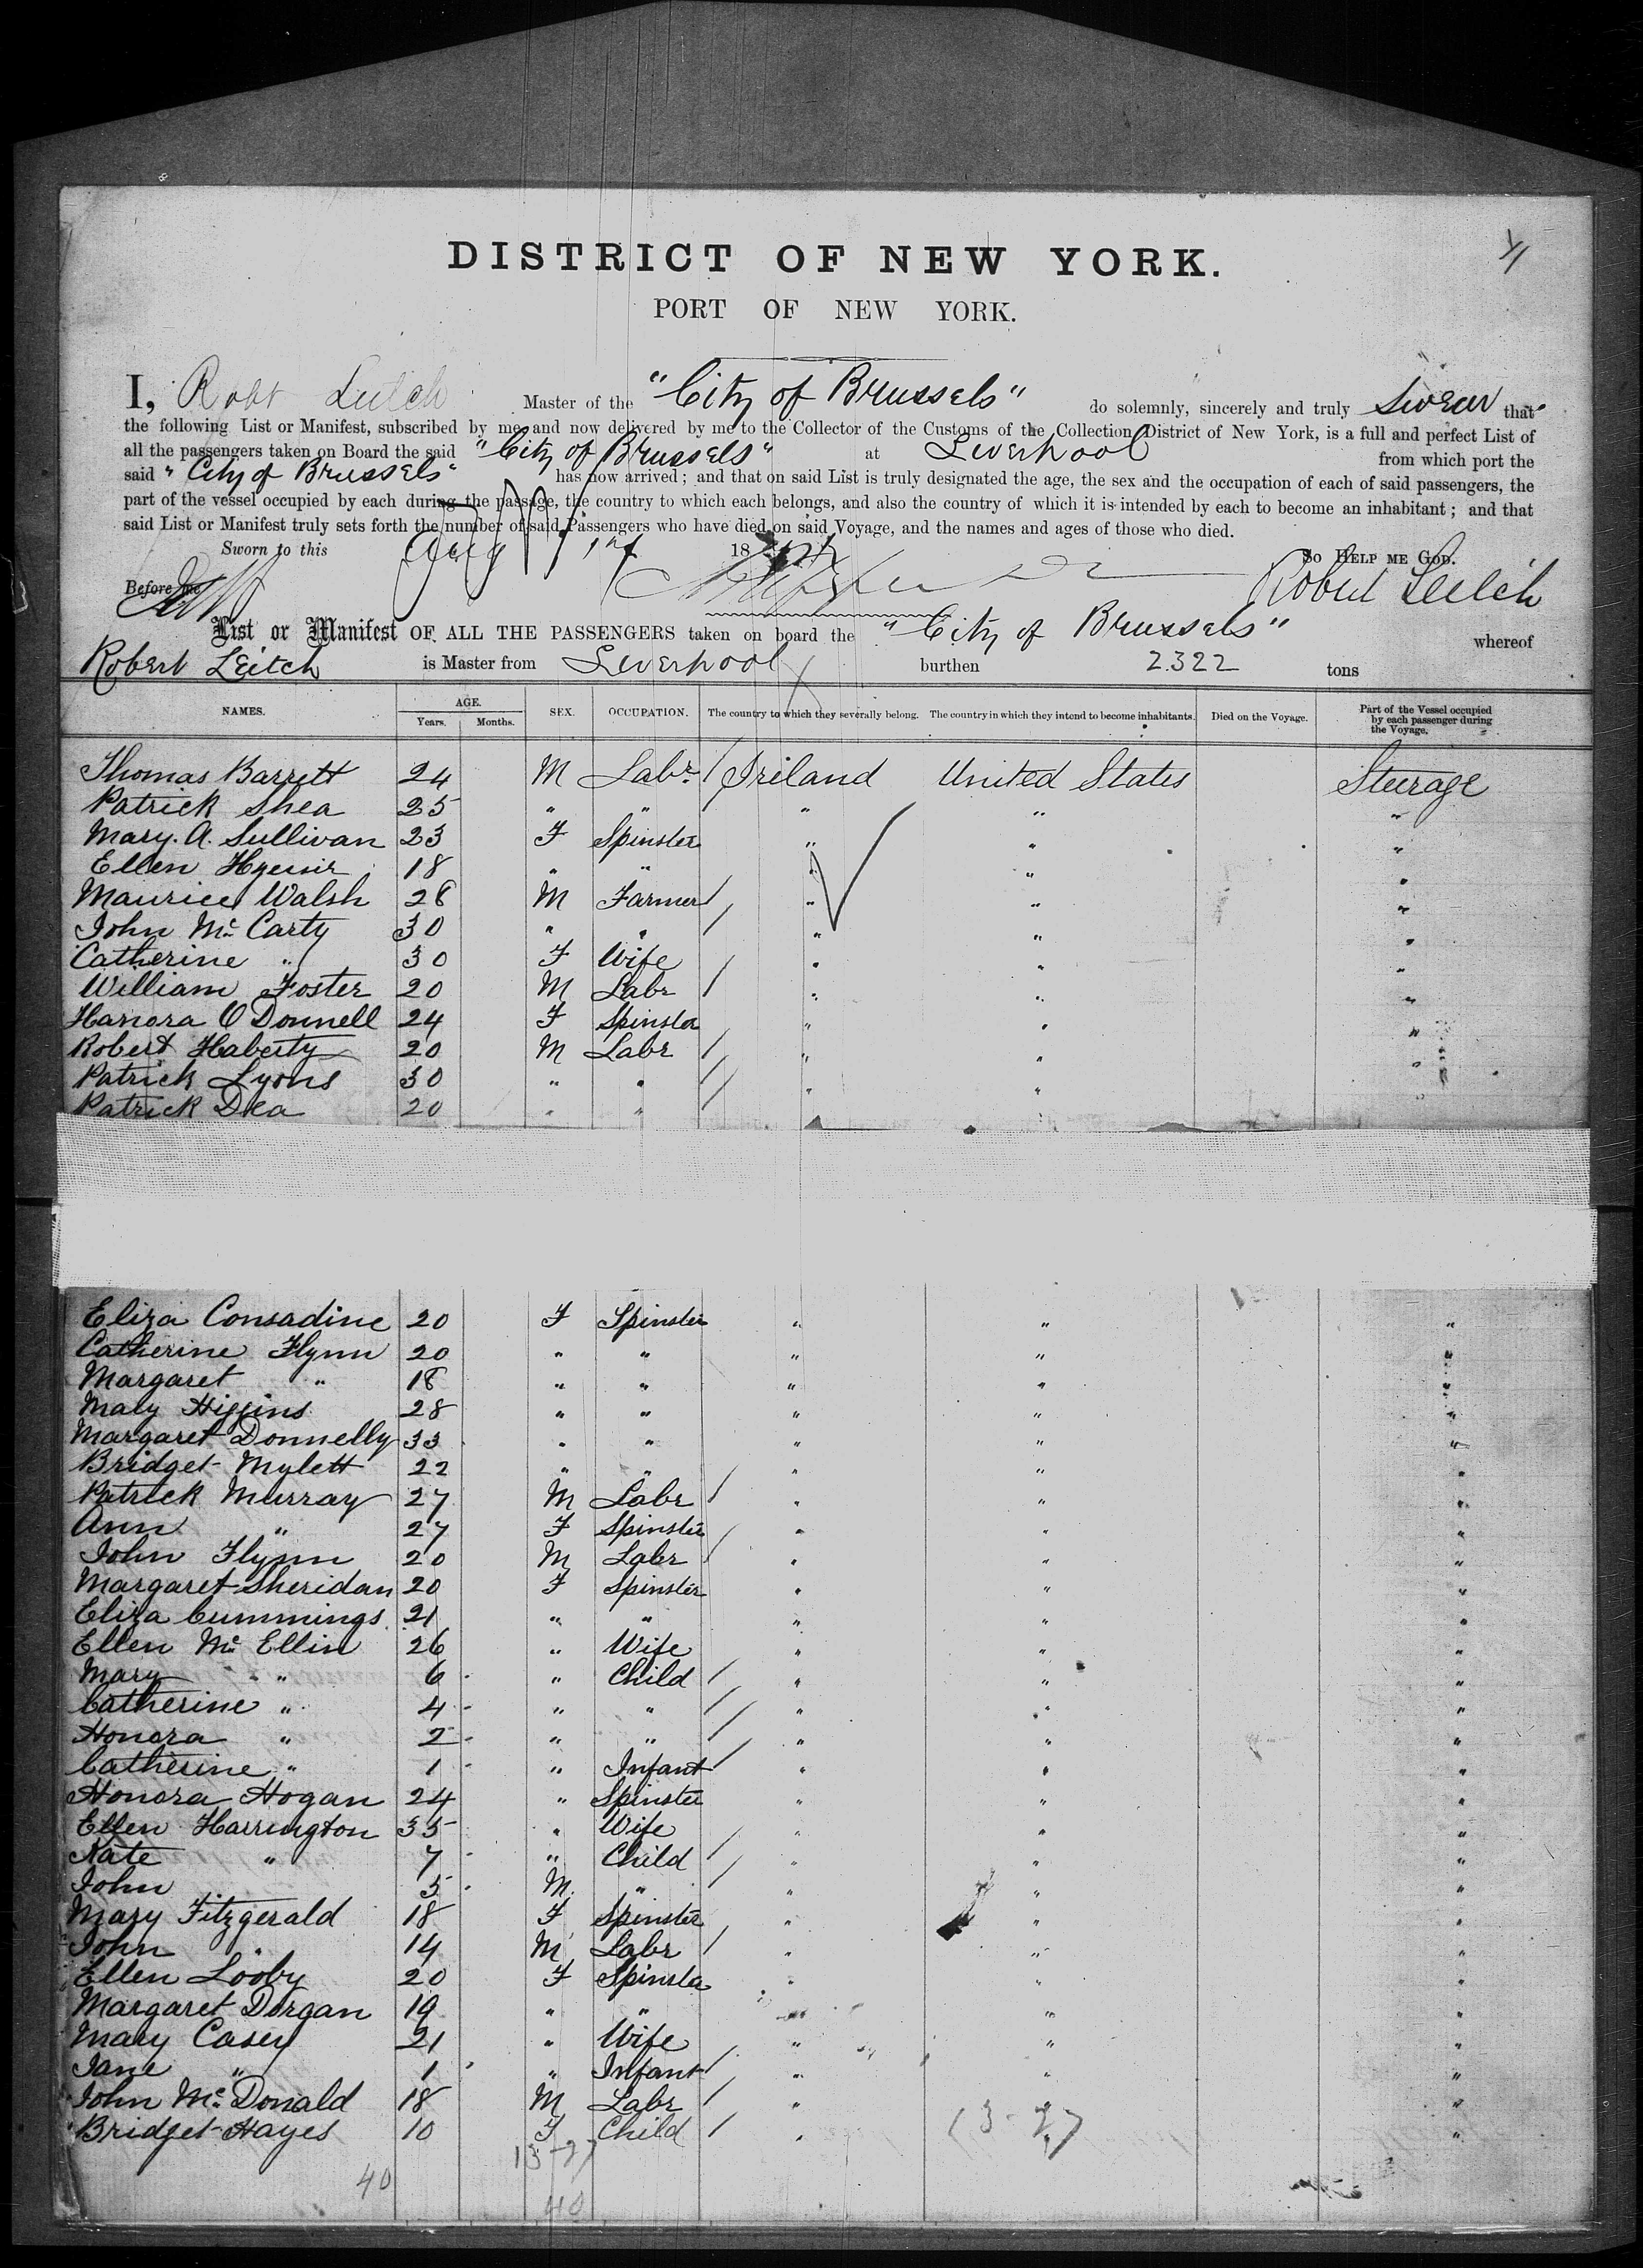 DISTRICT OF NEW YORK.
PORT OF NEW YORK.
I, Robt Leitch Master of the "City of Brussels" do solemnly, sincerely and truly Swear that
the following List or Manifest, subscribed by me and now delivered by me to the Collector of the Customs of the Collection District of New York, is a full and perfect List of
all the passengers taken on Board the said "City of Brussels" at Liverpool from which port the
said "City of Brussels" has now arrived; and that on said List is truly designated the age, the sex and the occupation of each of said passengers, the
part of the vessel occupied by each during the passage, the country to which each belongs, and also the country of which it is intended by each to become an inhabitant; and that
said List or Manifest truly sets forth the number of said Passengers who have died on said Voyage, and the names and ages of those who died.
Sworn to this Aug 18 So HELP ME GOD.
Before me Robert Leitch
List or Manifest OF ALL THE PASSENGERS taken on board the "City of Brussels" whereof
Robert Leitch is Master from Liverpool burthen 2.322 tons
NAMES. AGE. Years. Months. SEX. OCCUPATION. The country to which they severally belong. The country in which they intend to become inhabitants. Died on the Voyage. Part of the Vessel occupied by each passenger during the Voyage.
Thomas Barrett 24 M Labr. Ireland United States Steerage
Patrick Shea 25 " " " " "
Mary. A. Sullivan 23 F Spinster " " "
Ellen 18 " " " " "
Maurice Walsh 28 M Farmer " " "
John Mc Carty 30 " " " " "
Catherine " 30 F Wife " " "
William Foster 20 M Labr " " "
Hanora O Donnell 24 F Spinster " " "
Robert Haberty 20 M Labr " " "
Patrick Lyons 30 " " " " "
Patrick Dea 20 " " " " "
Eliza Consadine 20 F Spinster " " "
Catherine Flynn 20 " " " " "
Margaret " 18 " " " " "
Maly Higgins 28 " " " " "
Margaret Donnelly 33 " " " " "
Bridget Mylett 22 " " " " "
Patrick Murray 27 M Labr " " "
Ann " 27 F Spinster " " "
John Flynn 20 M Labr " " "
Margaret Sheridan 20 F Spinster " " "
Eliza Cummings 21 " " " " "
Ellen Mc Ellin 26 " Wife " " "
Mary " 6 " Child " " "
Catherine " 4 " " " " "
Honora " 2 " " " " "
Catherine " 1 " Infant " " "
Honora Hogan 24 " Spinster " " "
Ellen Harrington 35 " Wife " " "
Kate " 7 " Child " " "
John 5 M " " " "
Mary Fitzgerald 18 F Spinster " " "
John " 14 M Labr " " "
Ellen Looby 20 F Spinster " " "
Margaret Dorgan 19 " " " " "
Mary Casey 21 " Wife " " "
Jane " 1 " Infant " " "
John Mc Donald 18 M Labr " " "
Bridget Hayes 10 F Child " " "
13-27
40
40